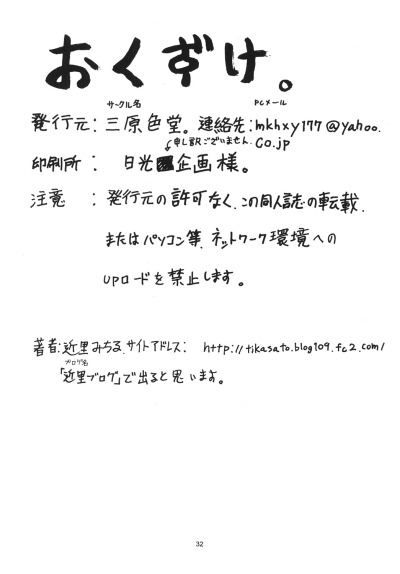 おくずけ。
サークル名 PCメール
発行元：三原色堂。連絡先：mkhxy177@yahoo.
申し訳ございません。 co.jp
印刷所 ： 日光企画様。
注意 ： 発行元の許可なく、この同人誌の転載、
またはパソコン等、ネットワーク環境への
UPロードを禁止します。
著者：近里みちる、サイトアドレス： http://tikasato.blog109.fc2.com/
ブログ名
「近里ブログ」で出ると思います。
32